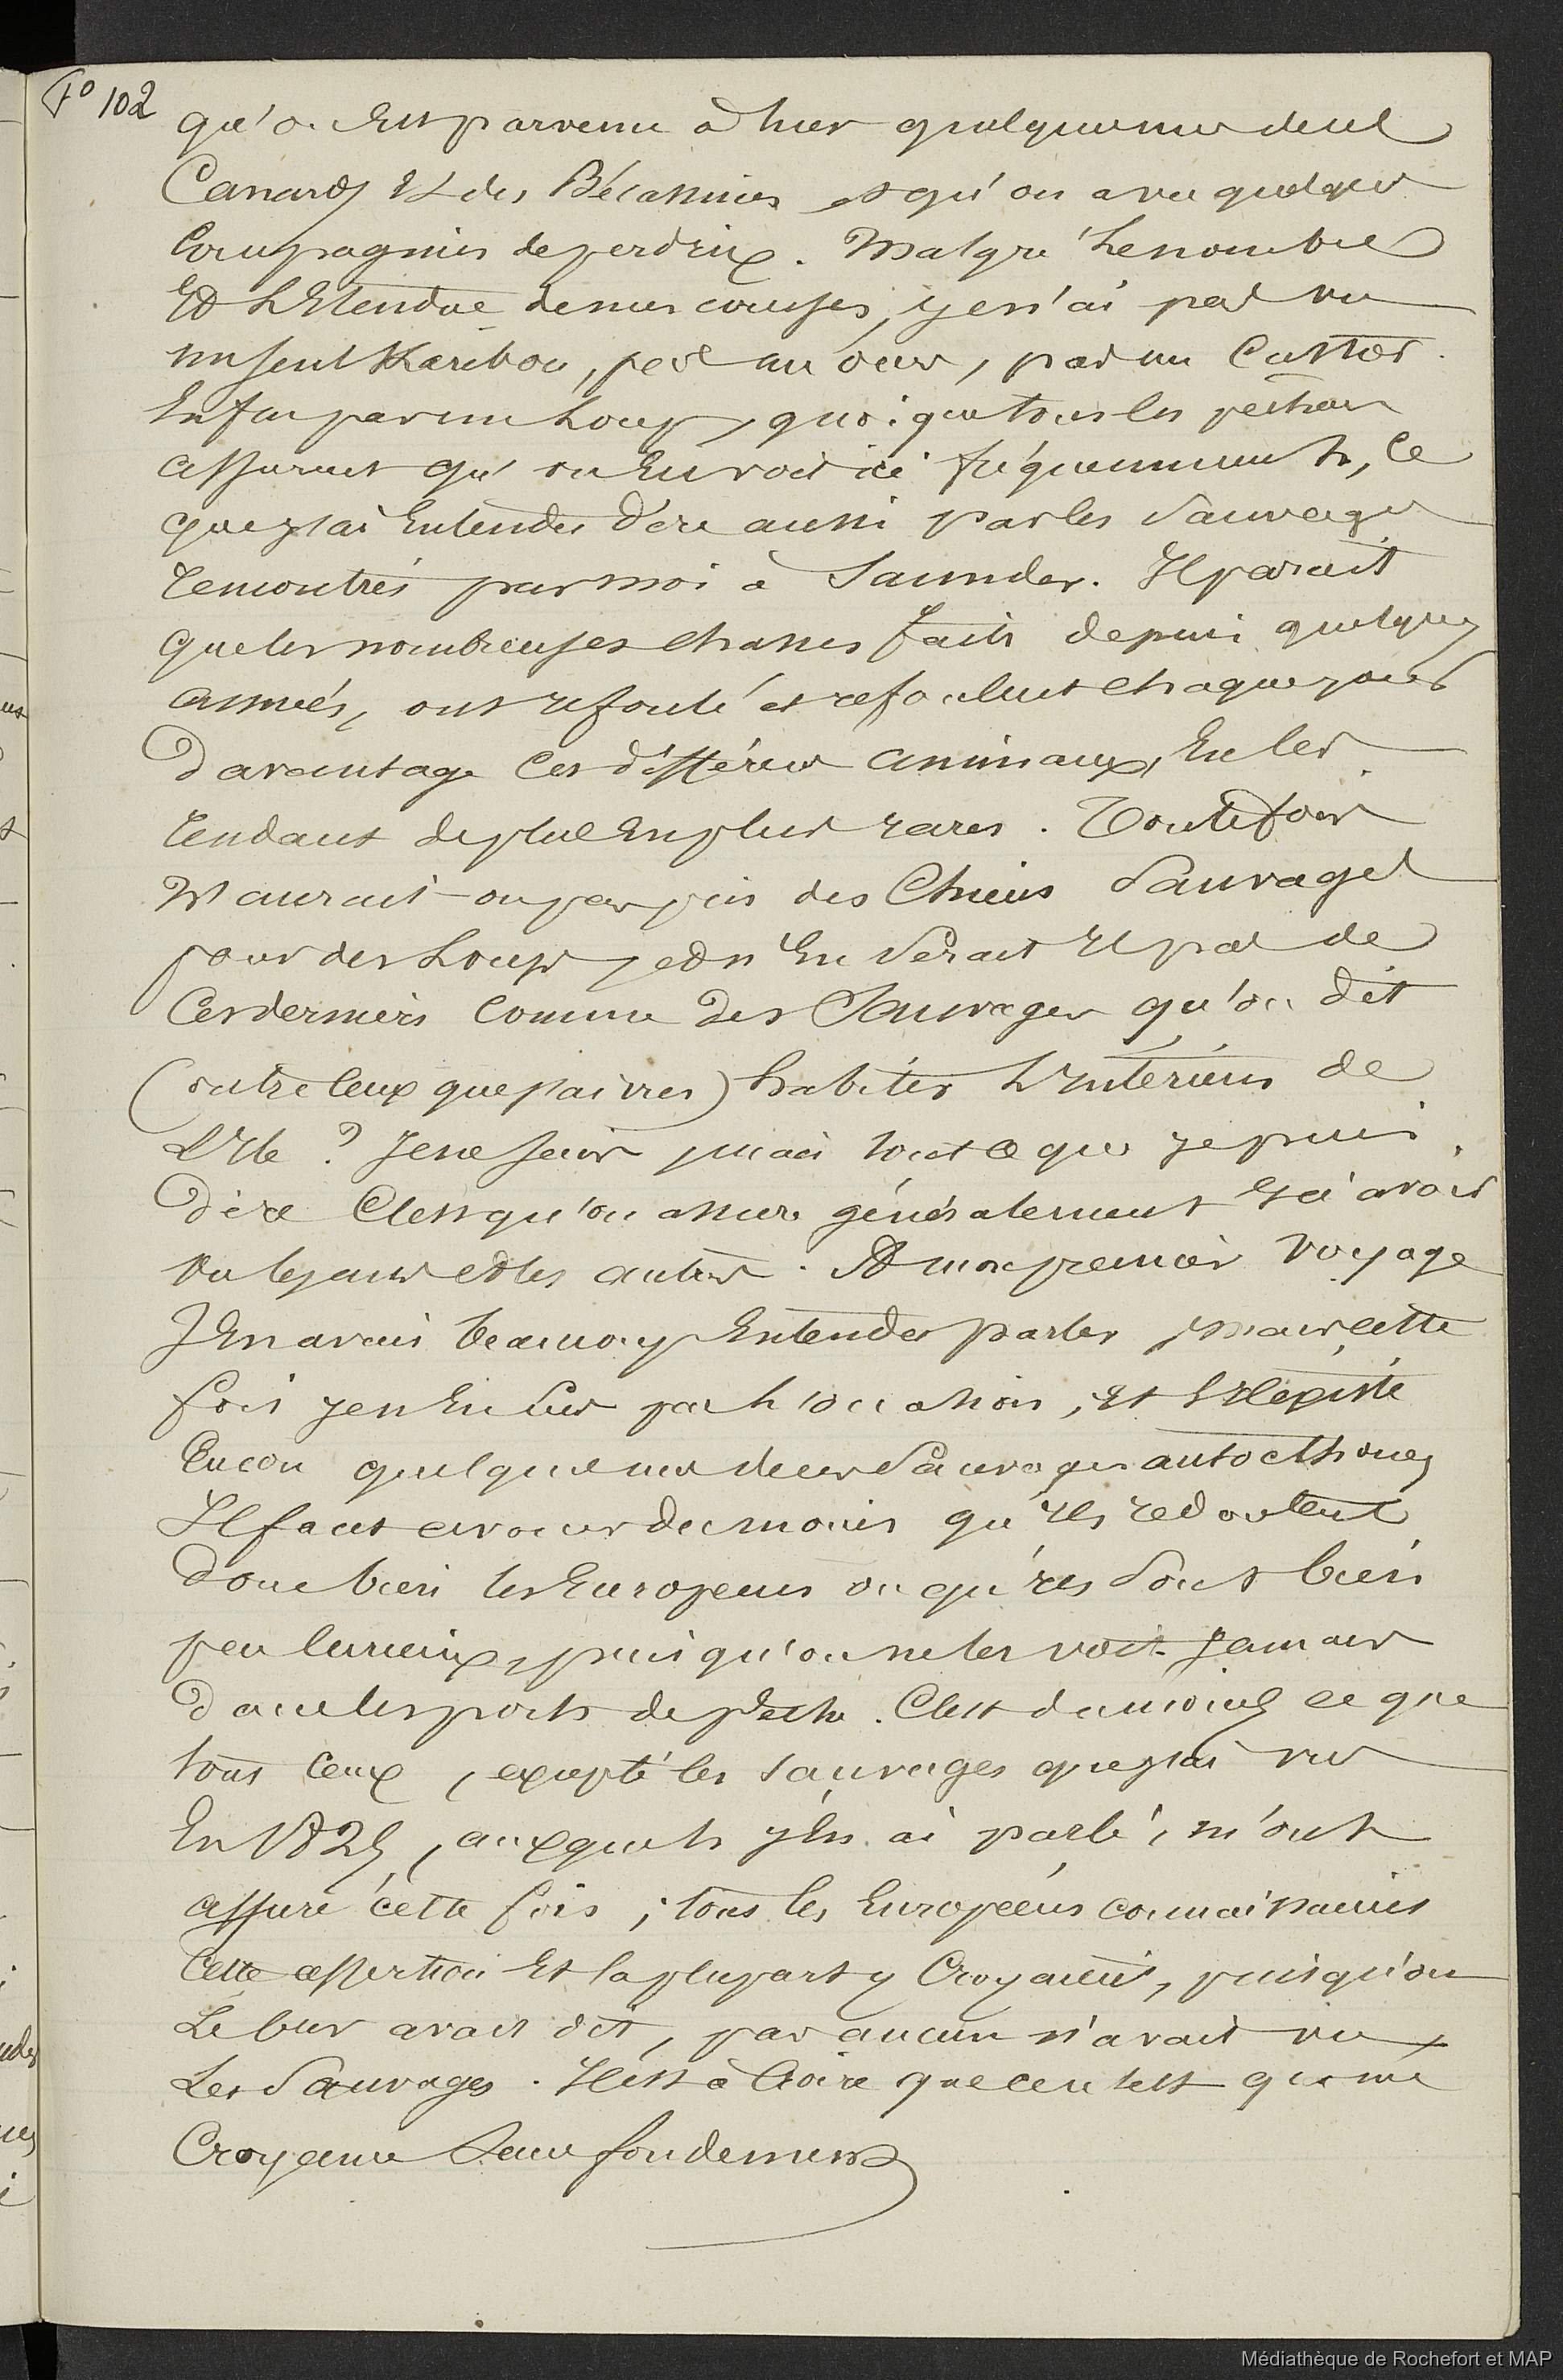 Fo 102
qu'on Est parvenu à tuer quelques uns deces
Canards Et des Bécassines et qu'on a vu quelques
Compagnies de perdrix. Malgré Le nombre
Et L'Etendue de mes courses, je n'ai pas vu
un seul Karibou, pas un ours, pas un Castor.
Enfin pas un Loup, quoique tous les pecheurs
assurent qu'on En voit ici fréquemment, Ce
que j'ai Entendu dire aussi par les Sauvages
rencontrés par moi à Saunder. Il parait
que les nombreuses chasses faits depuis quelques
années, ont refoulé et refoulent chaque jour
Davantage Ces différents animaux, En les
rendant de plus En plus rares. Toutefois
N'aurait-on pas pris des Chiens Sauvages
pour des Loups, et n'En Serait Il pas de
Ces derniers Comme Des Sauvages qu'on dit
(outre Ceux que j'ai vus) habiter L'Intérieur de
L'Ile ? Je ne sais, mais tout ce que je puis
Dire C'est qu'on assure généralement y avoir
Vu les uns et les autres. A mon premier Voyage
J'En avais beaucoup Entendu parler, mais cette
fois je n'En Eus pas L'occasion, Et S'Il existe
Encore quelques uns deces Sauvages autocthones
Il faut avouer du moins qu'Ils redoutent
Donc bien les Européens ou qu'Ils Sont bien
peu Curieux, puisqu'on ne les voit Jamais
Dans les ports de Peche. C'est du moins ce que
tous Ceux, excepté les Sauvages que j'ai vus
En 1828, auxquels j'En ai parlé, m'ont
assuré cette fois; tous les Européens connaissaient
Cette assertion Et la plupart y Croyaient, puisqu'on
Le leur avait dit, pas aucun n'avait vu
Les Sauvages. Il est à Croire que ceci n'est qu'une
Croyance Sans fondement
Médiathèque de Rochefort et MAP